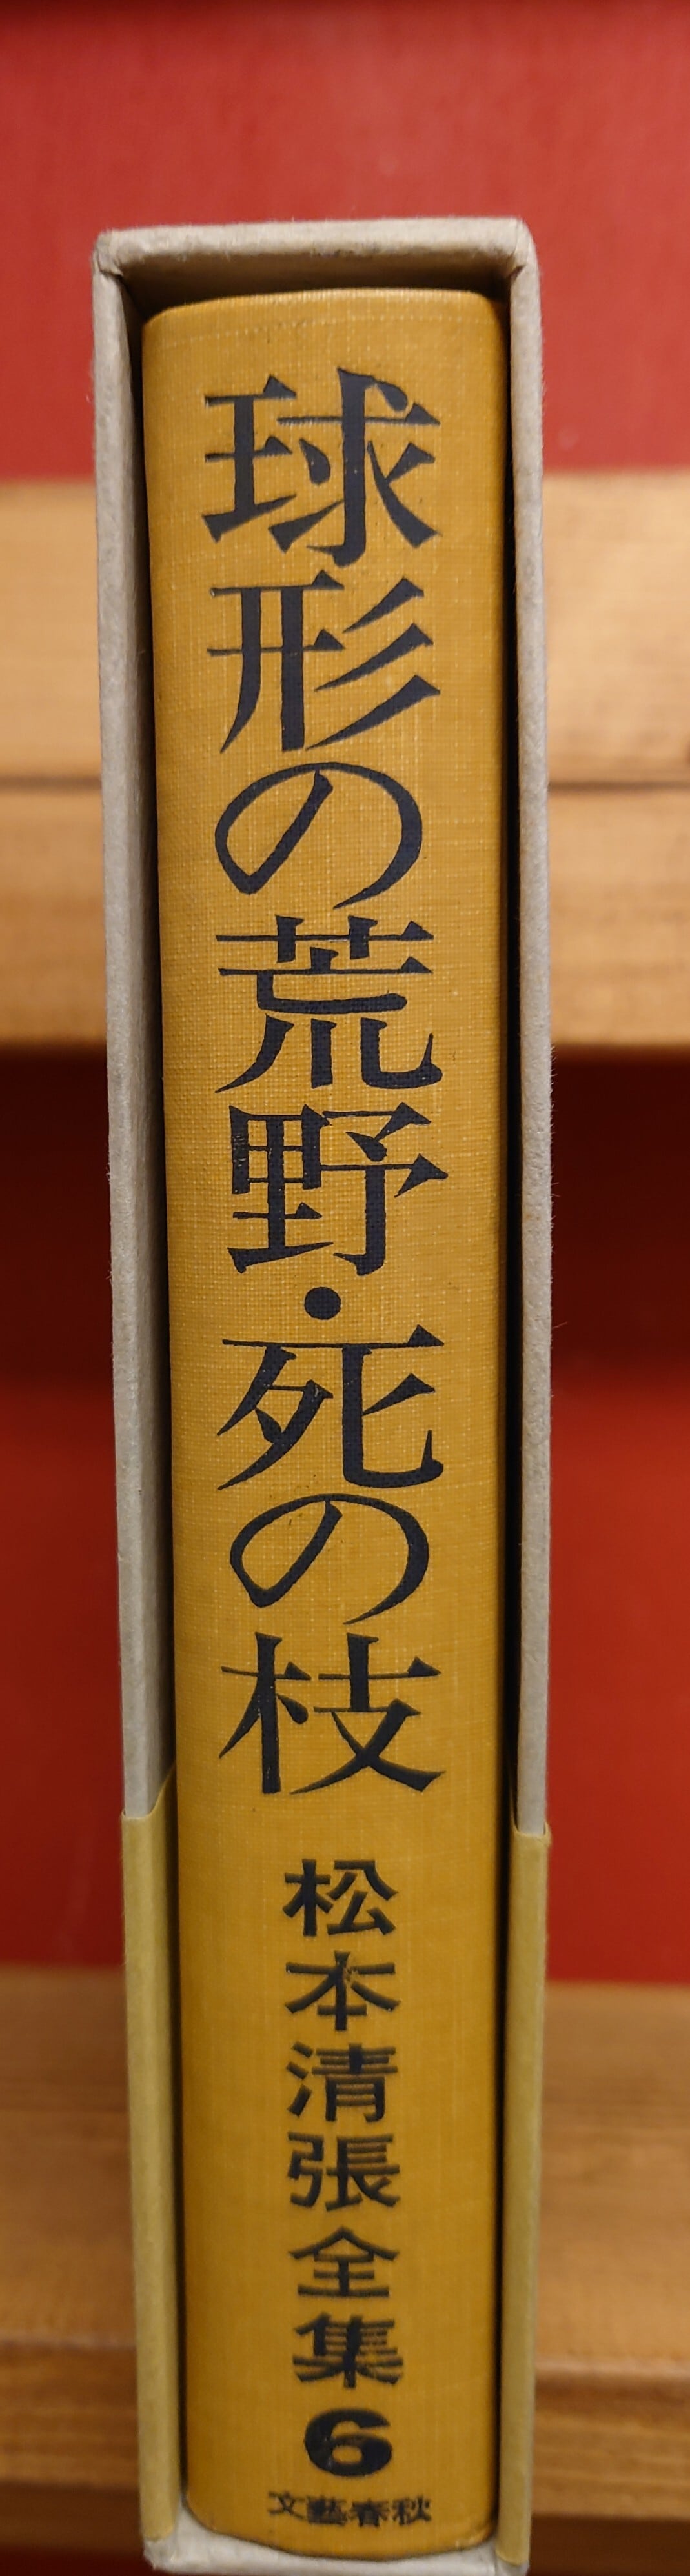 球形の荒野・死の枝
松本清張全集6
文藝春秋